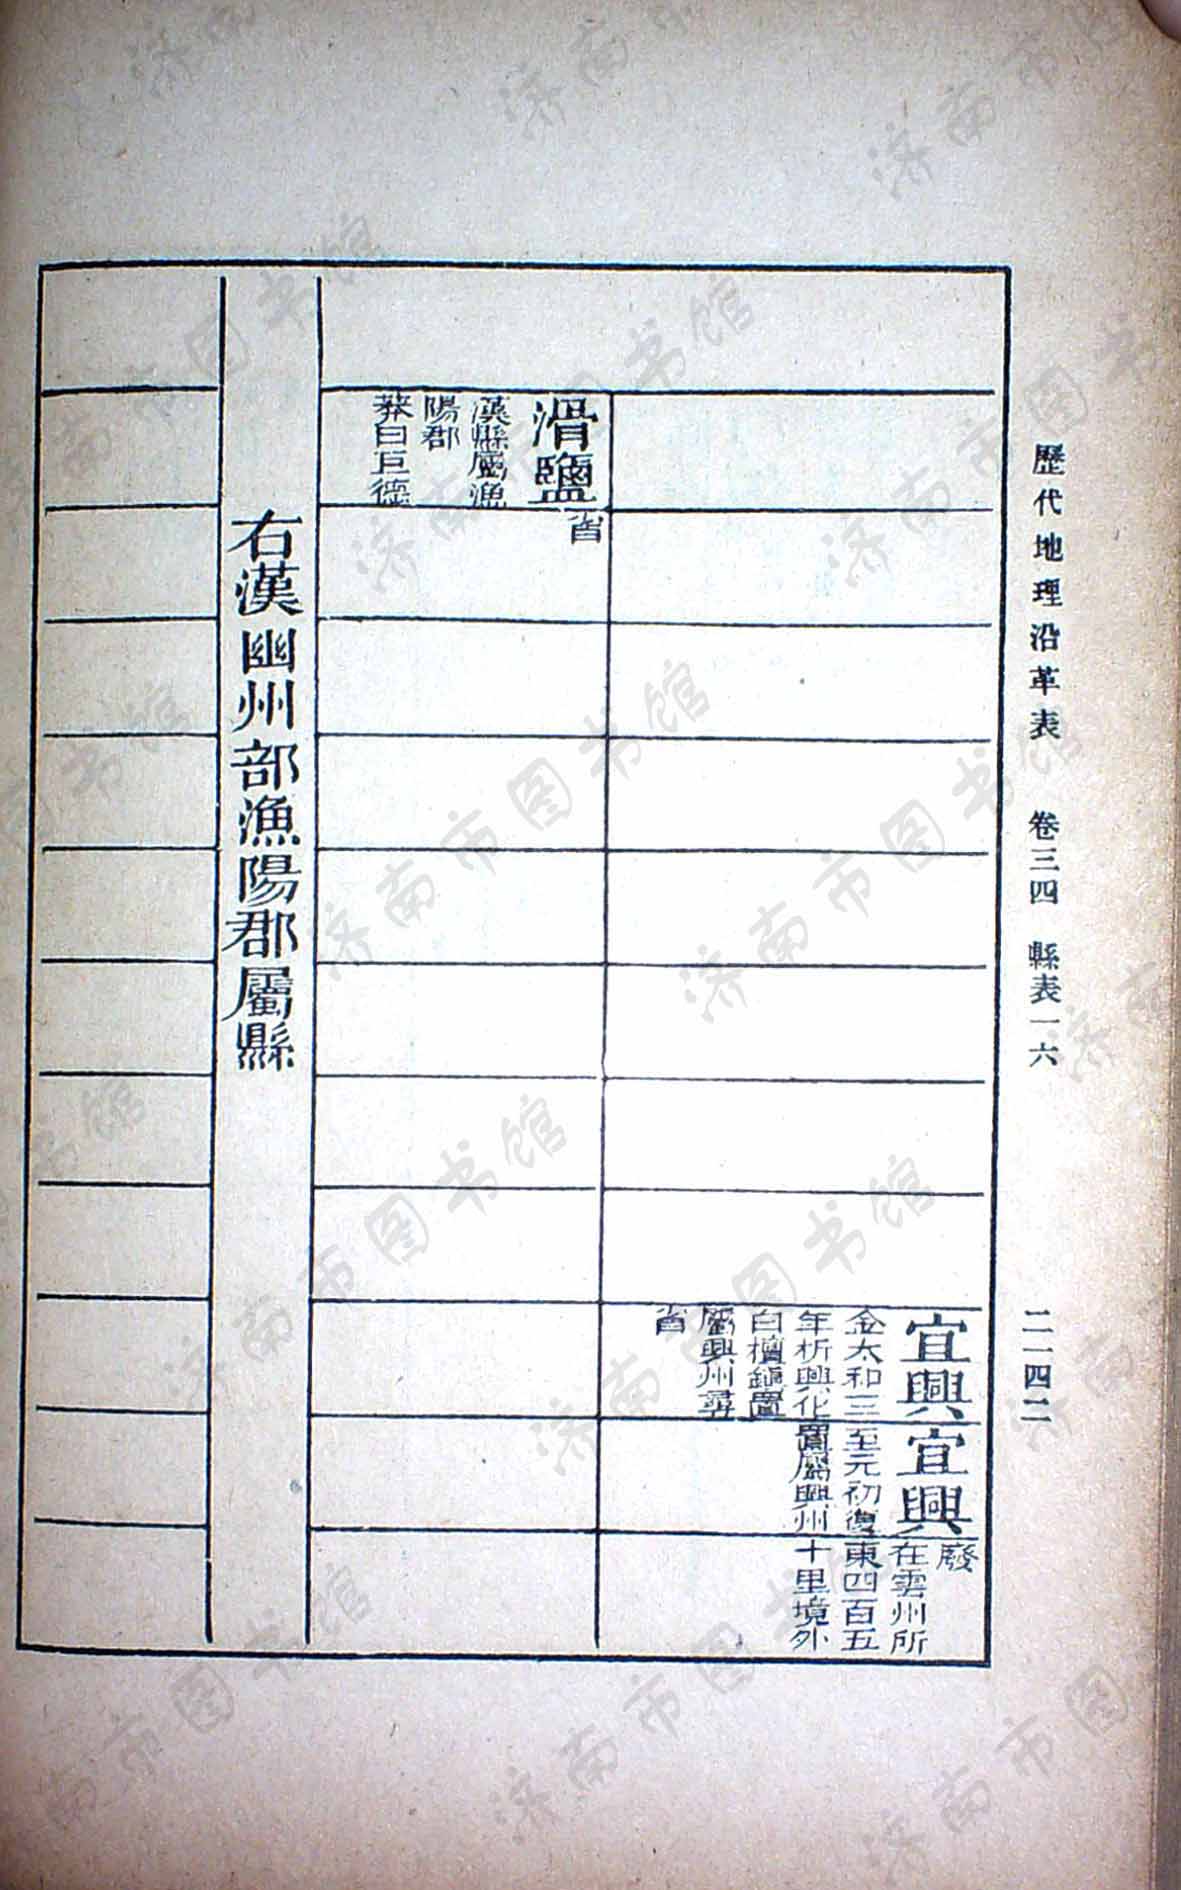 歷代地理沿革表　卷三四　縣表一六　二一四二
宜興
金太和三
年析興化
白檀鎮置
屬興州尋
省
宜興
至元初復
置屬興州
廢
在雲州所
東四百五
十里境外
滑鹽
漢縣屬漁
陽郡
莽曰匡德
省
右漢幽州部漁陽郡屬縣
济南市图书馆